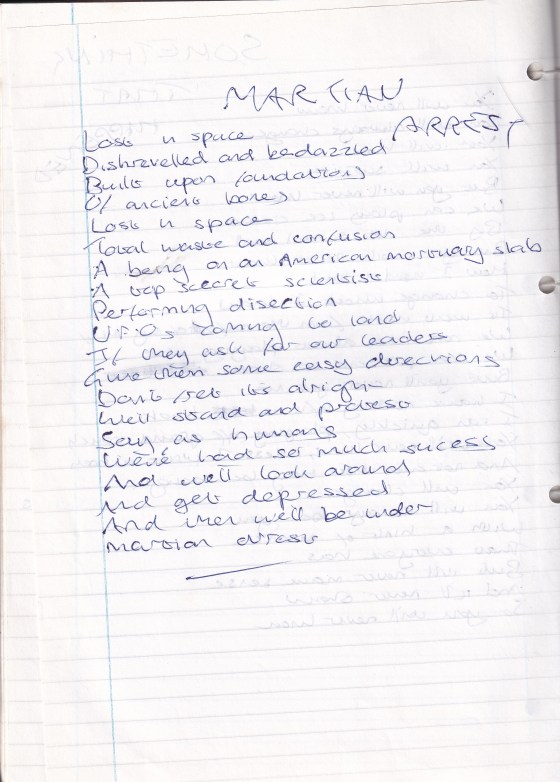 MARTIAN
ARREST
Lost in space
Dishrevelled and bedazzled
Built upon foundations
Of ancient bones
Lost in space
Total waste and confusion
A being on an American mortuary slab
A top secret scientist
Performing disection
U.F.Os coming to land
If they ask for our leaders
Give them some easy directions
Don't fret its alright
We'll stand and protest
Say as humans
We've had so much sucess
And we'll look around
And get depressed
And then we'll be under
Martian arrest